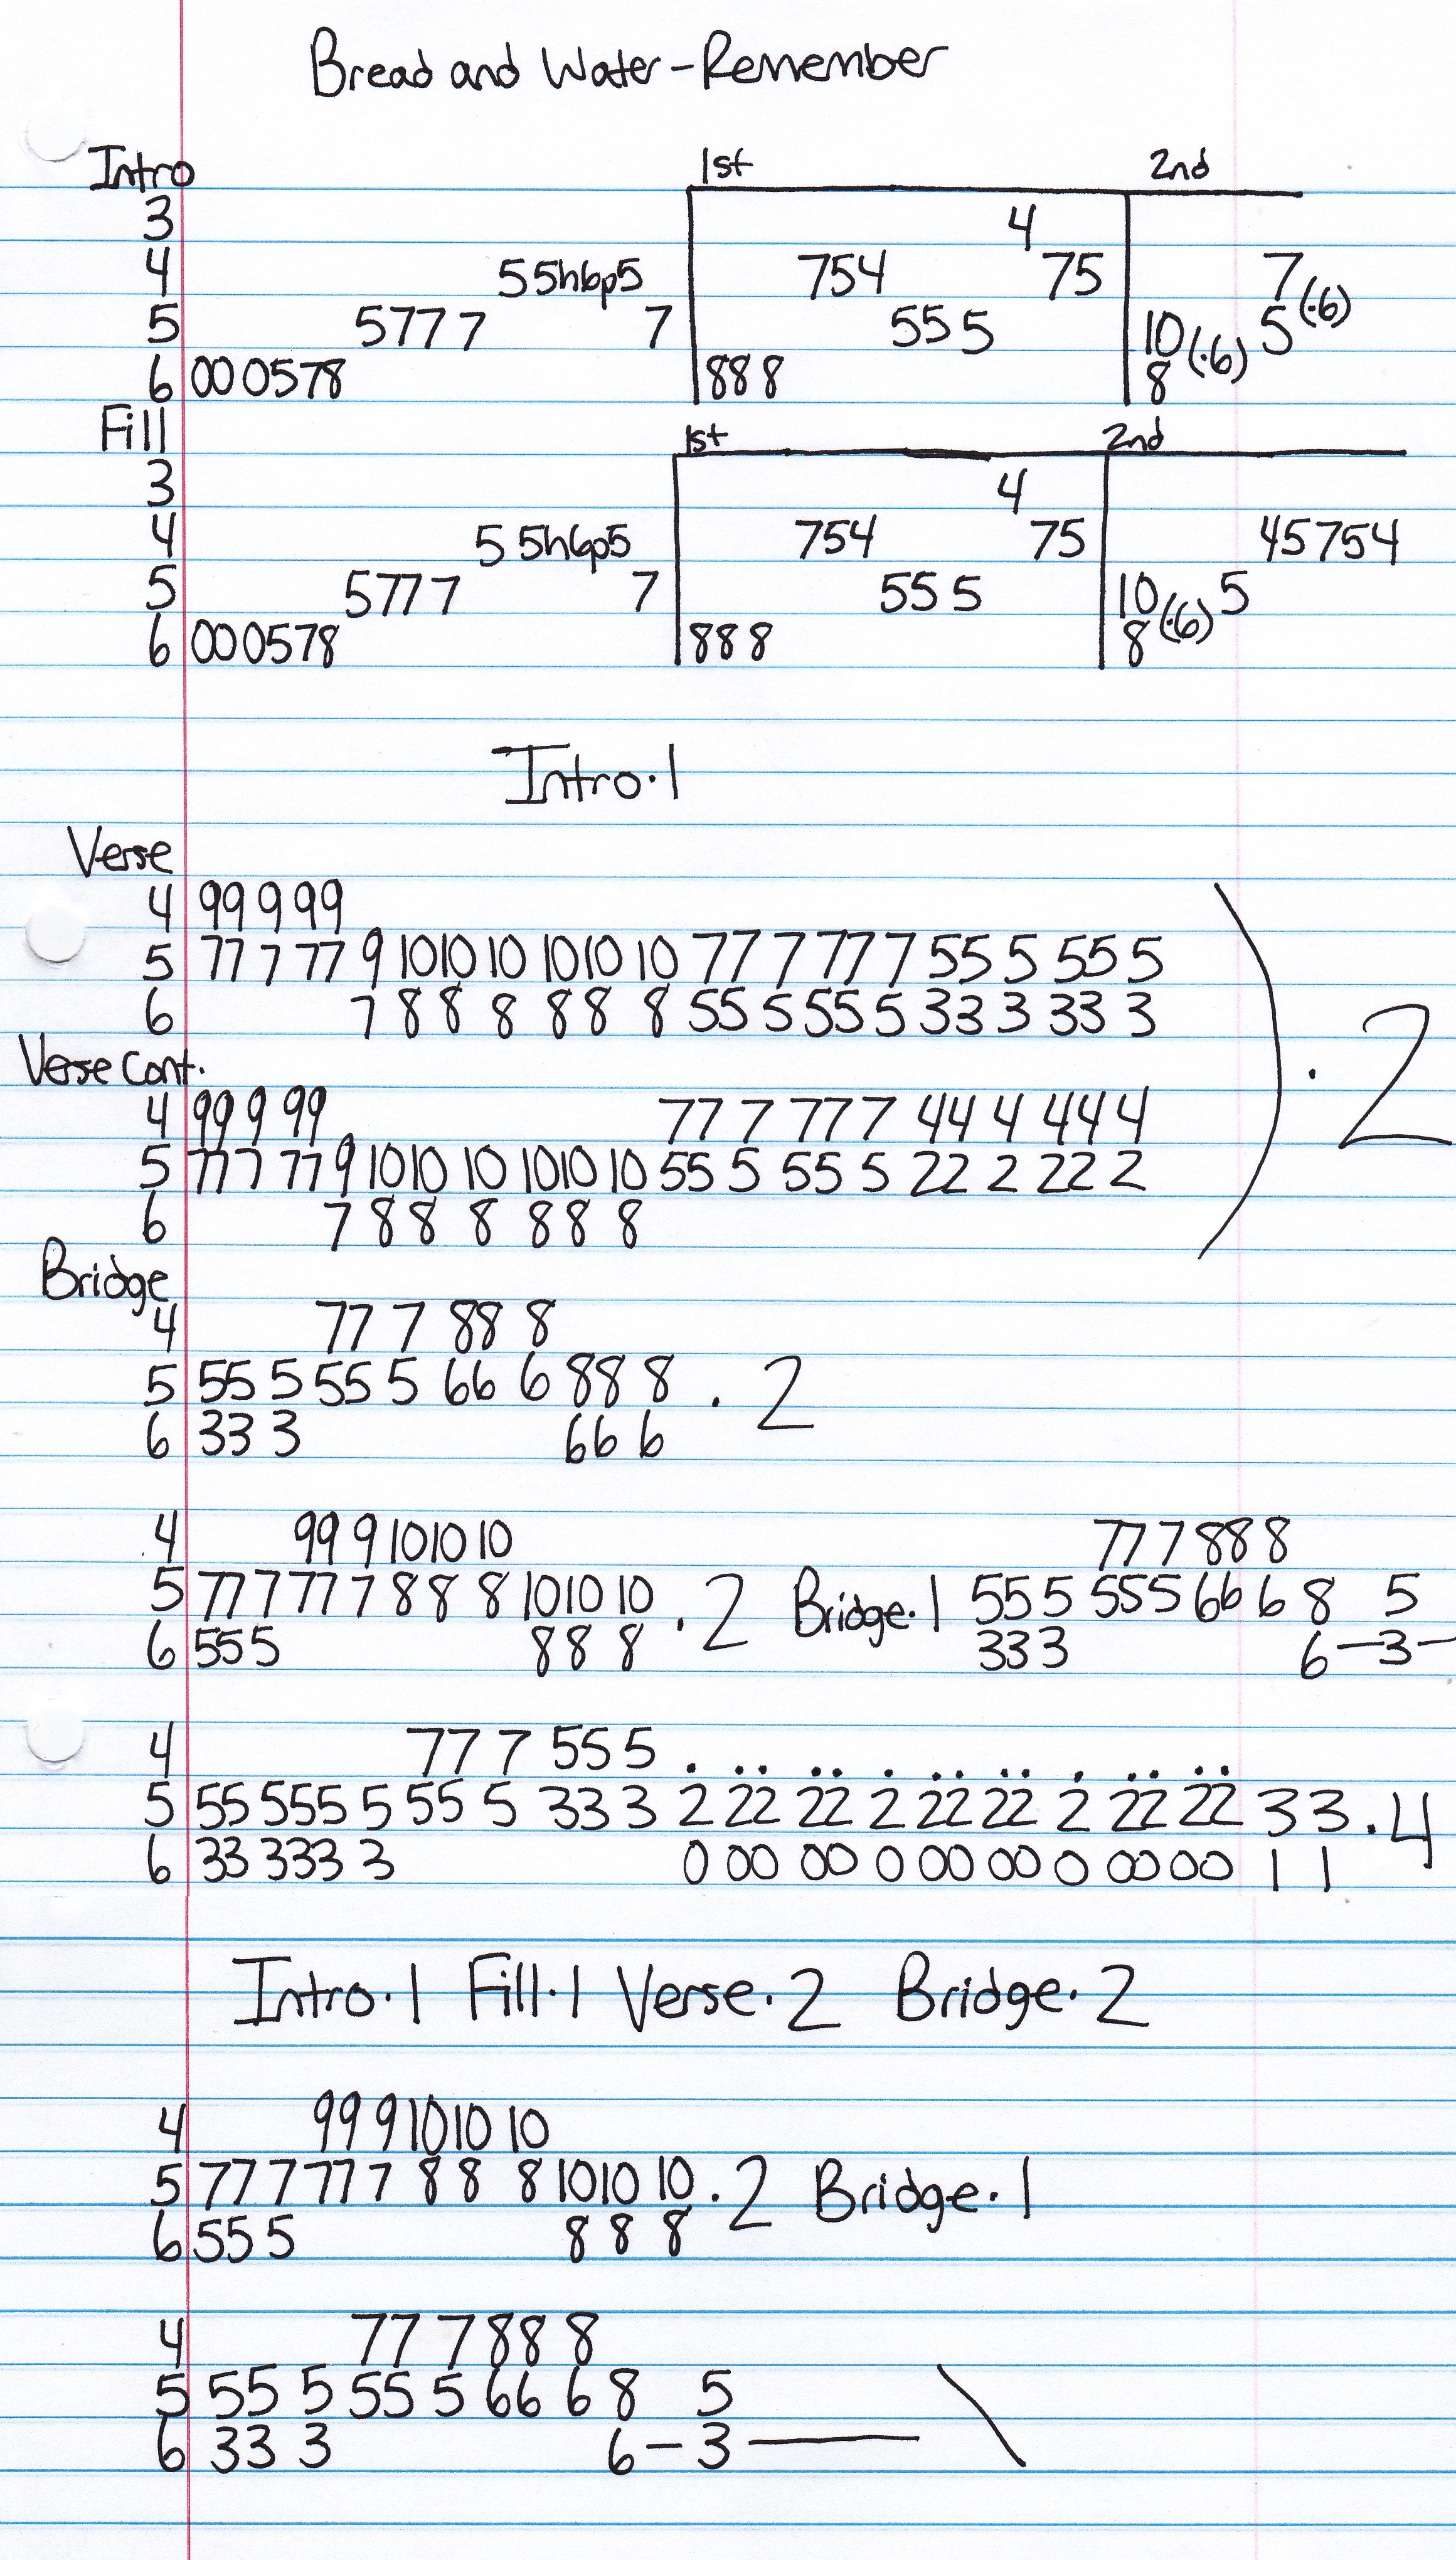 Bread and Water-Remember
Intro 1st 2nd
3 4
4 55h6p5 754 75 7(·6)
5 5777 7 555 10(·6) 5
6 000578 888 8
Fill 1st 2nd
3 4
4 5 5h6p5 754 75 45754
5 5777 7 555 10(·6) 5
6 000578 888 8
Intro·1
Verse
4 99 9 99
5 77 7 77 9 1010 10 1010 10 77 7 777 7 55 5 555 5
6 7 88 8 88 8 55 5 555 5 33 3 33 3
Verse Cont. ·2
4 99 9 99 77 7 777 7 44 4 444 4
5 777 77 9 1010 10 1010 10 55 5 55 5 22 2 222 2
6 7 88 8 88 8
Bridge
4 77 7 88 8
5 55 5 55 5 66 6 88 8 · 2
6 33 3 66 6
4 99 9 1010 10 77 7 88 8
5 77 7 77 7 88 8 1010 10 · 2 Bridge·1 55 5 555 66 6 8 5
6 55 5 88 8 333 6-3-
4 77 7 55 5 . .. .. . .. .. . .. ..
5 55 555 5 55 5 33 3 2 22 22 2 22 22 2 22 22 3 3 .4
6 33 333 3 0 00 00 0 00 00 0 00 00 1 1
Intro·1 Fill·1 Verse·2 Bridge·2
4 99 9 1010 10
5 77 7 77 7 88 8 1010 10 · 2 Bridge·1
6 55 5 88 8
4 77 7 88 8
5 55 5 55 5 66 6 8 5
6 33 3 6-3—